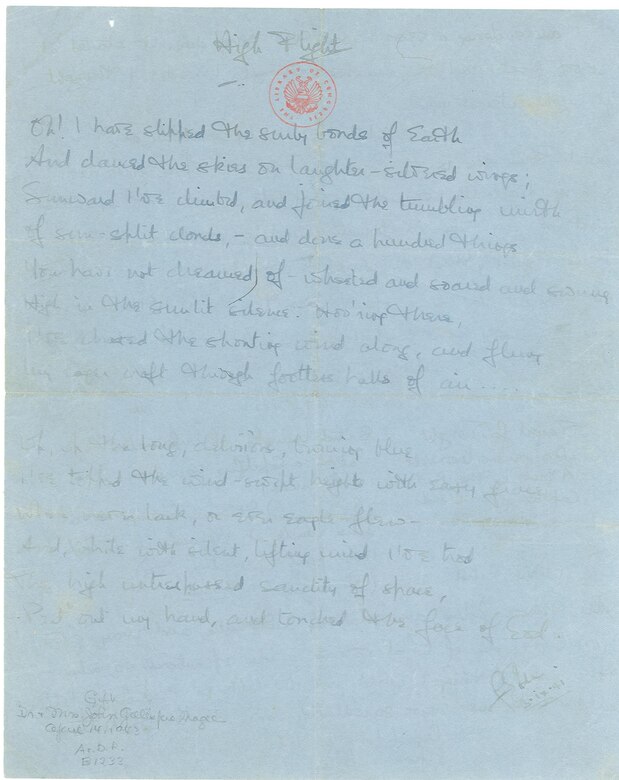 High Flight
THE LIBRARY OF CONGRESS
Oh! I have slipped the surly bonds of Earth
And danced the skies on laughter-silvered wings;
Sunward I've climbed, and joined the tumbling mirth
of sun-split clouds, - and done a hundred things
You have not dreamed of - wheeled and soared and swung
High in the sunlit silence. Hov'ring there,
I've chased the shouting wind along, and flung
My eager craft through footless halls of air....
Up, up the long, delirious, burning blue
I've topped the wind-swept heights with easy grace
Where never lark, or ever eagle flew -
And, while with silent, lifting mind I've trod
The high untrespassed sanctity of space,
Put out my hand, and touched the face of God.
Gift
Dr. + Mrs. John Gillespie Magee
April 14, 1943
A.D.F.
E1233